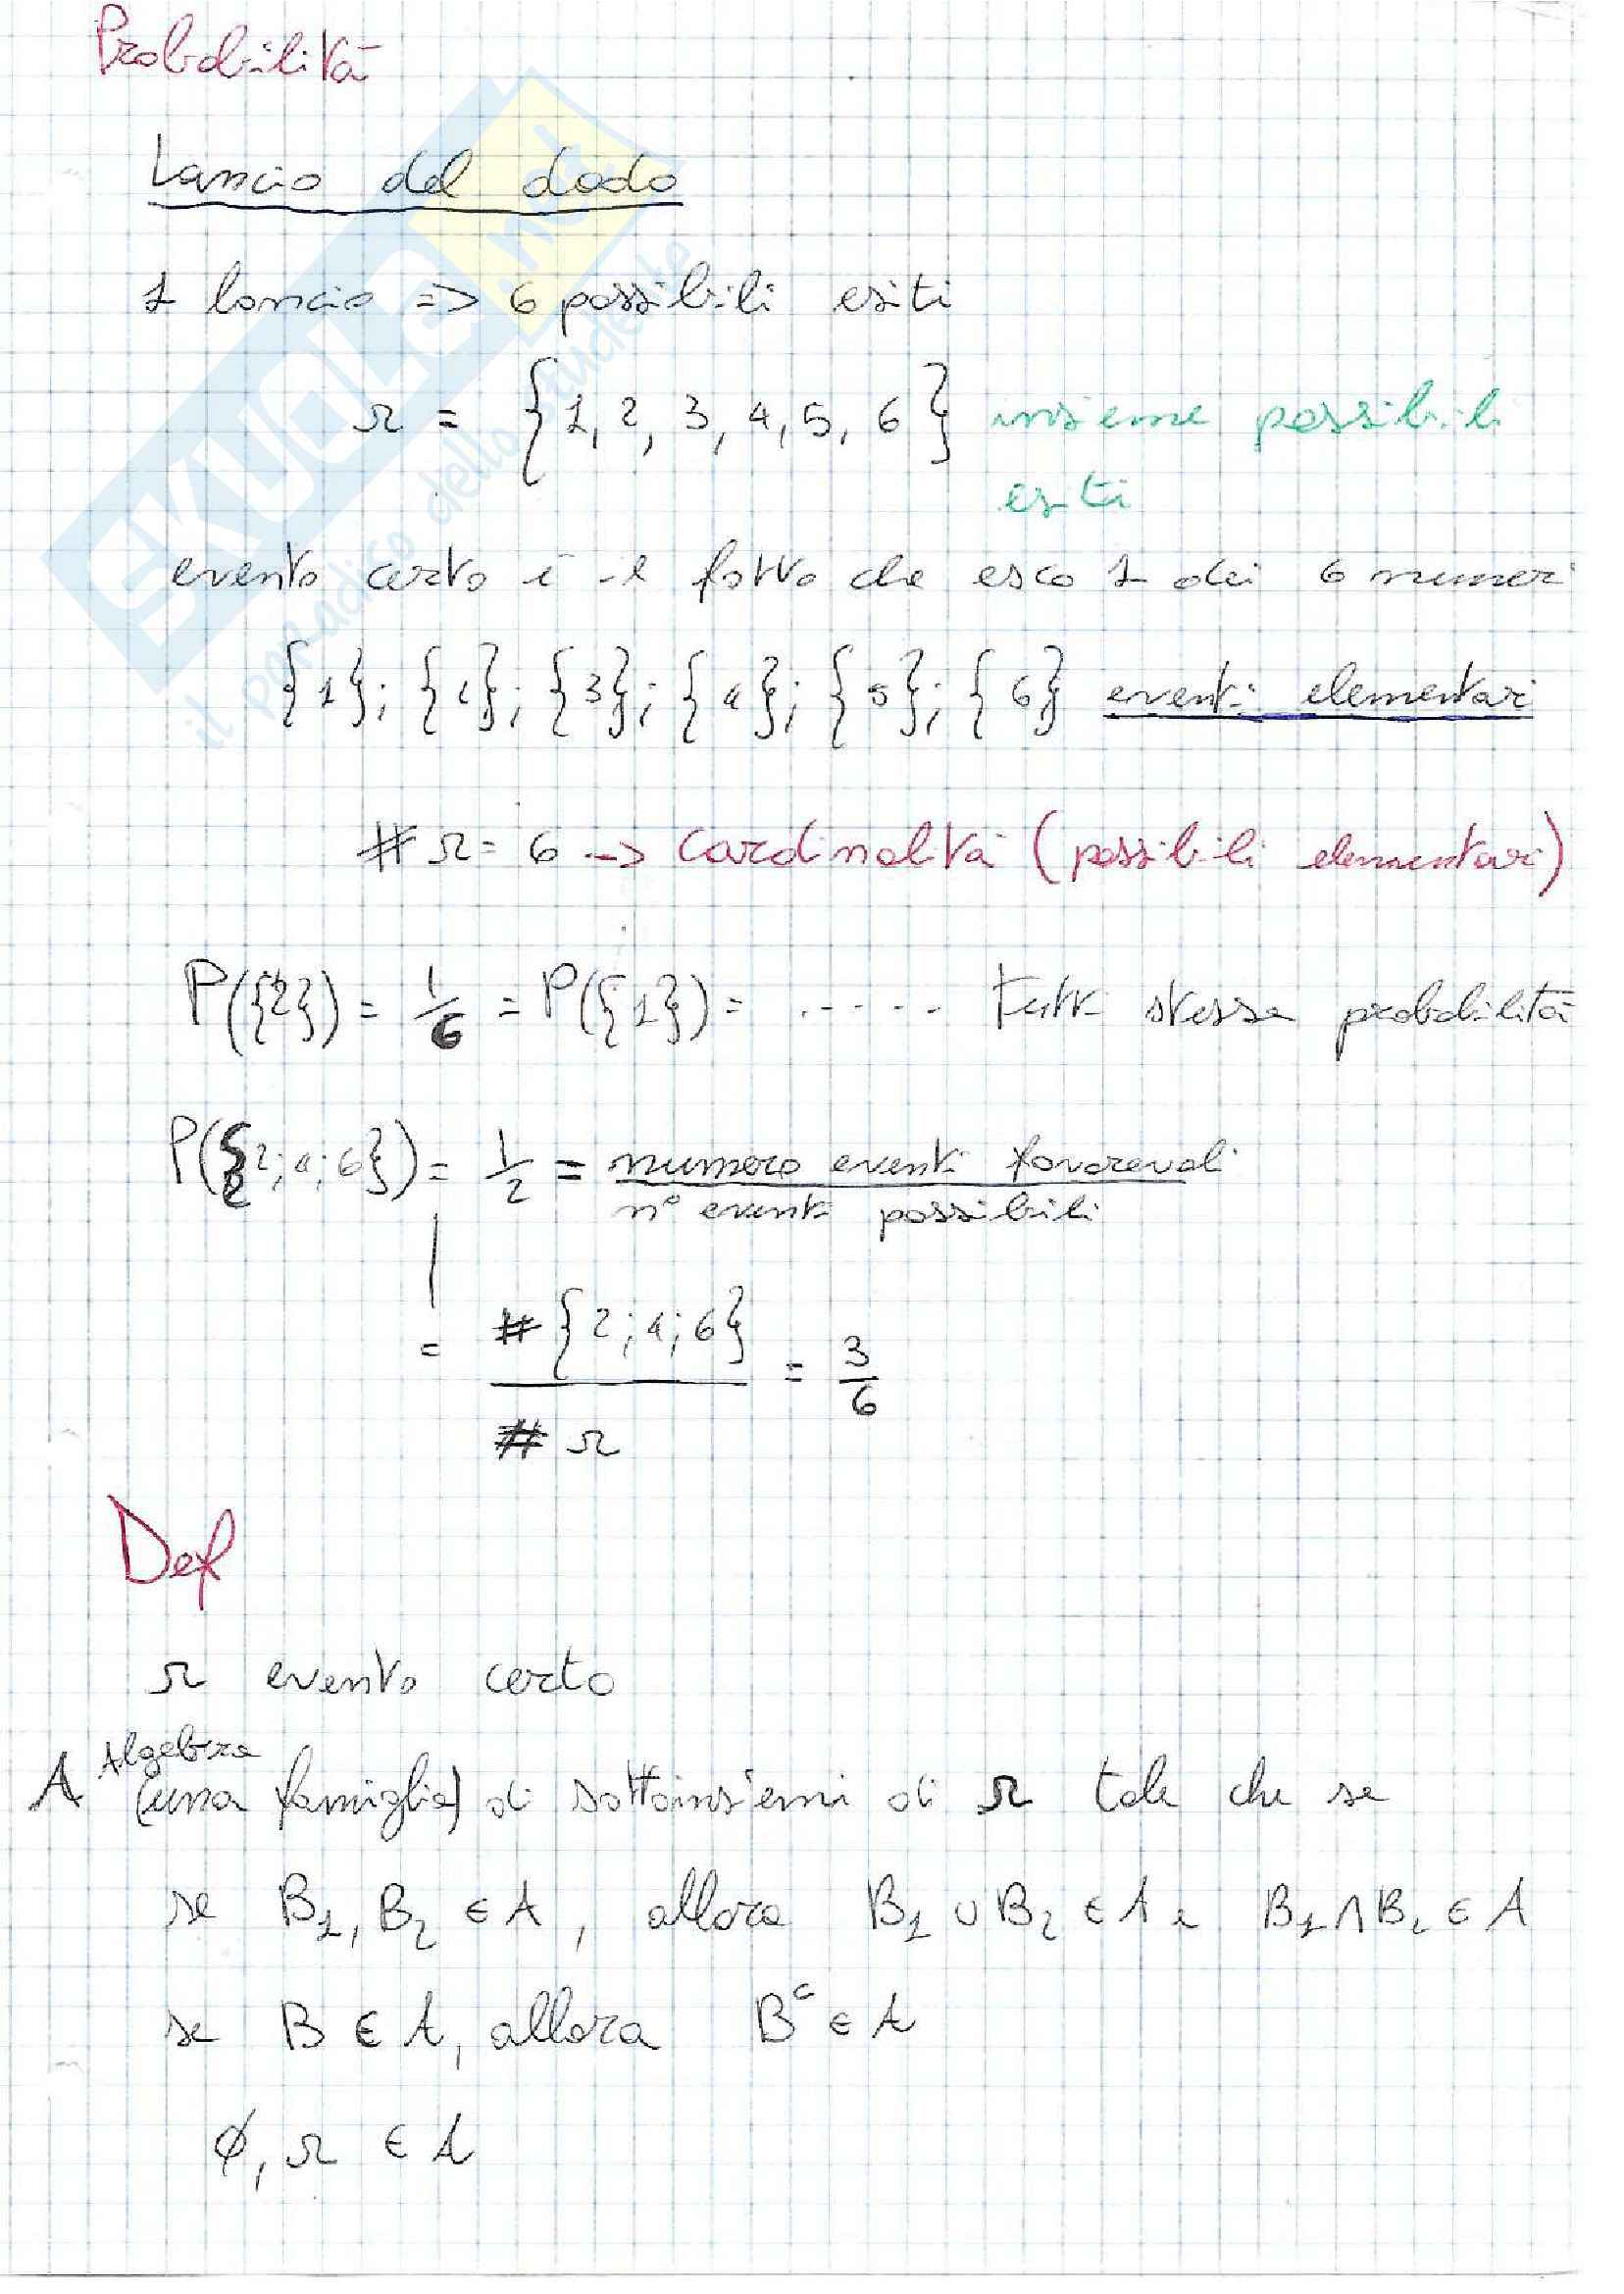 Probabilità
Lancio del dado
1 lancio => 6 possibili esiti
Ω = {1, 2, 3, 4, 5, 6} insieme possibili
esiti
evento certo è il fatto che esca 1 dei 6 numeri
{1}; {2}; {3}; {4}; {5}; {6} eventi elementari
#Ω = 6 -> cardinalità (possibili elementari)
P({2}) = 1/6 = P({1}) = ..... tutti stessa probabilità
P({2;4;6}) = 1/2 = numero eventi favorevoli
n° eventi possibili
= #{2;4;6} / #Ω = 3/6
Def
Ω evento certo
Algebra
A (una famiglia) di sottoinsiemi di Ω tale che se
se B1, B2 ∈ A, allora B1 ∪ B2 ∈ A e B1 ∩ B2 ∈ A
se B ∈ A, allora B^c ∈ A
∅, Ω ∈ A
SKUOLA.net
il paradiso dello studente